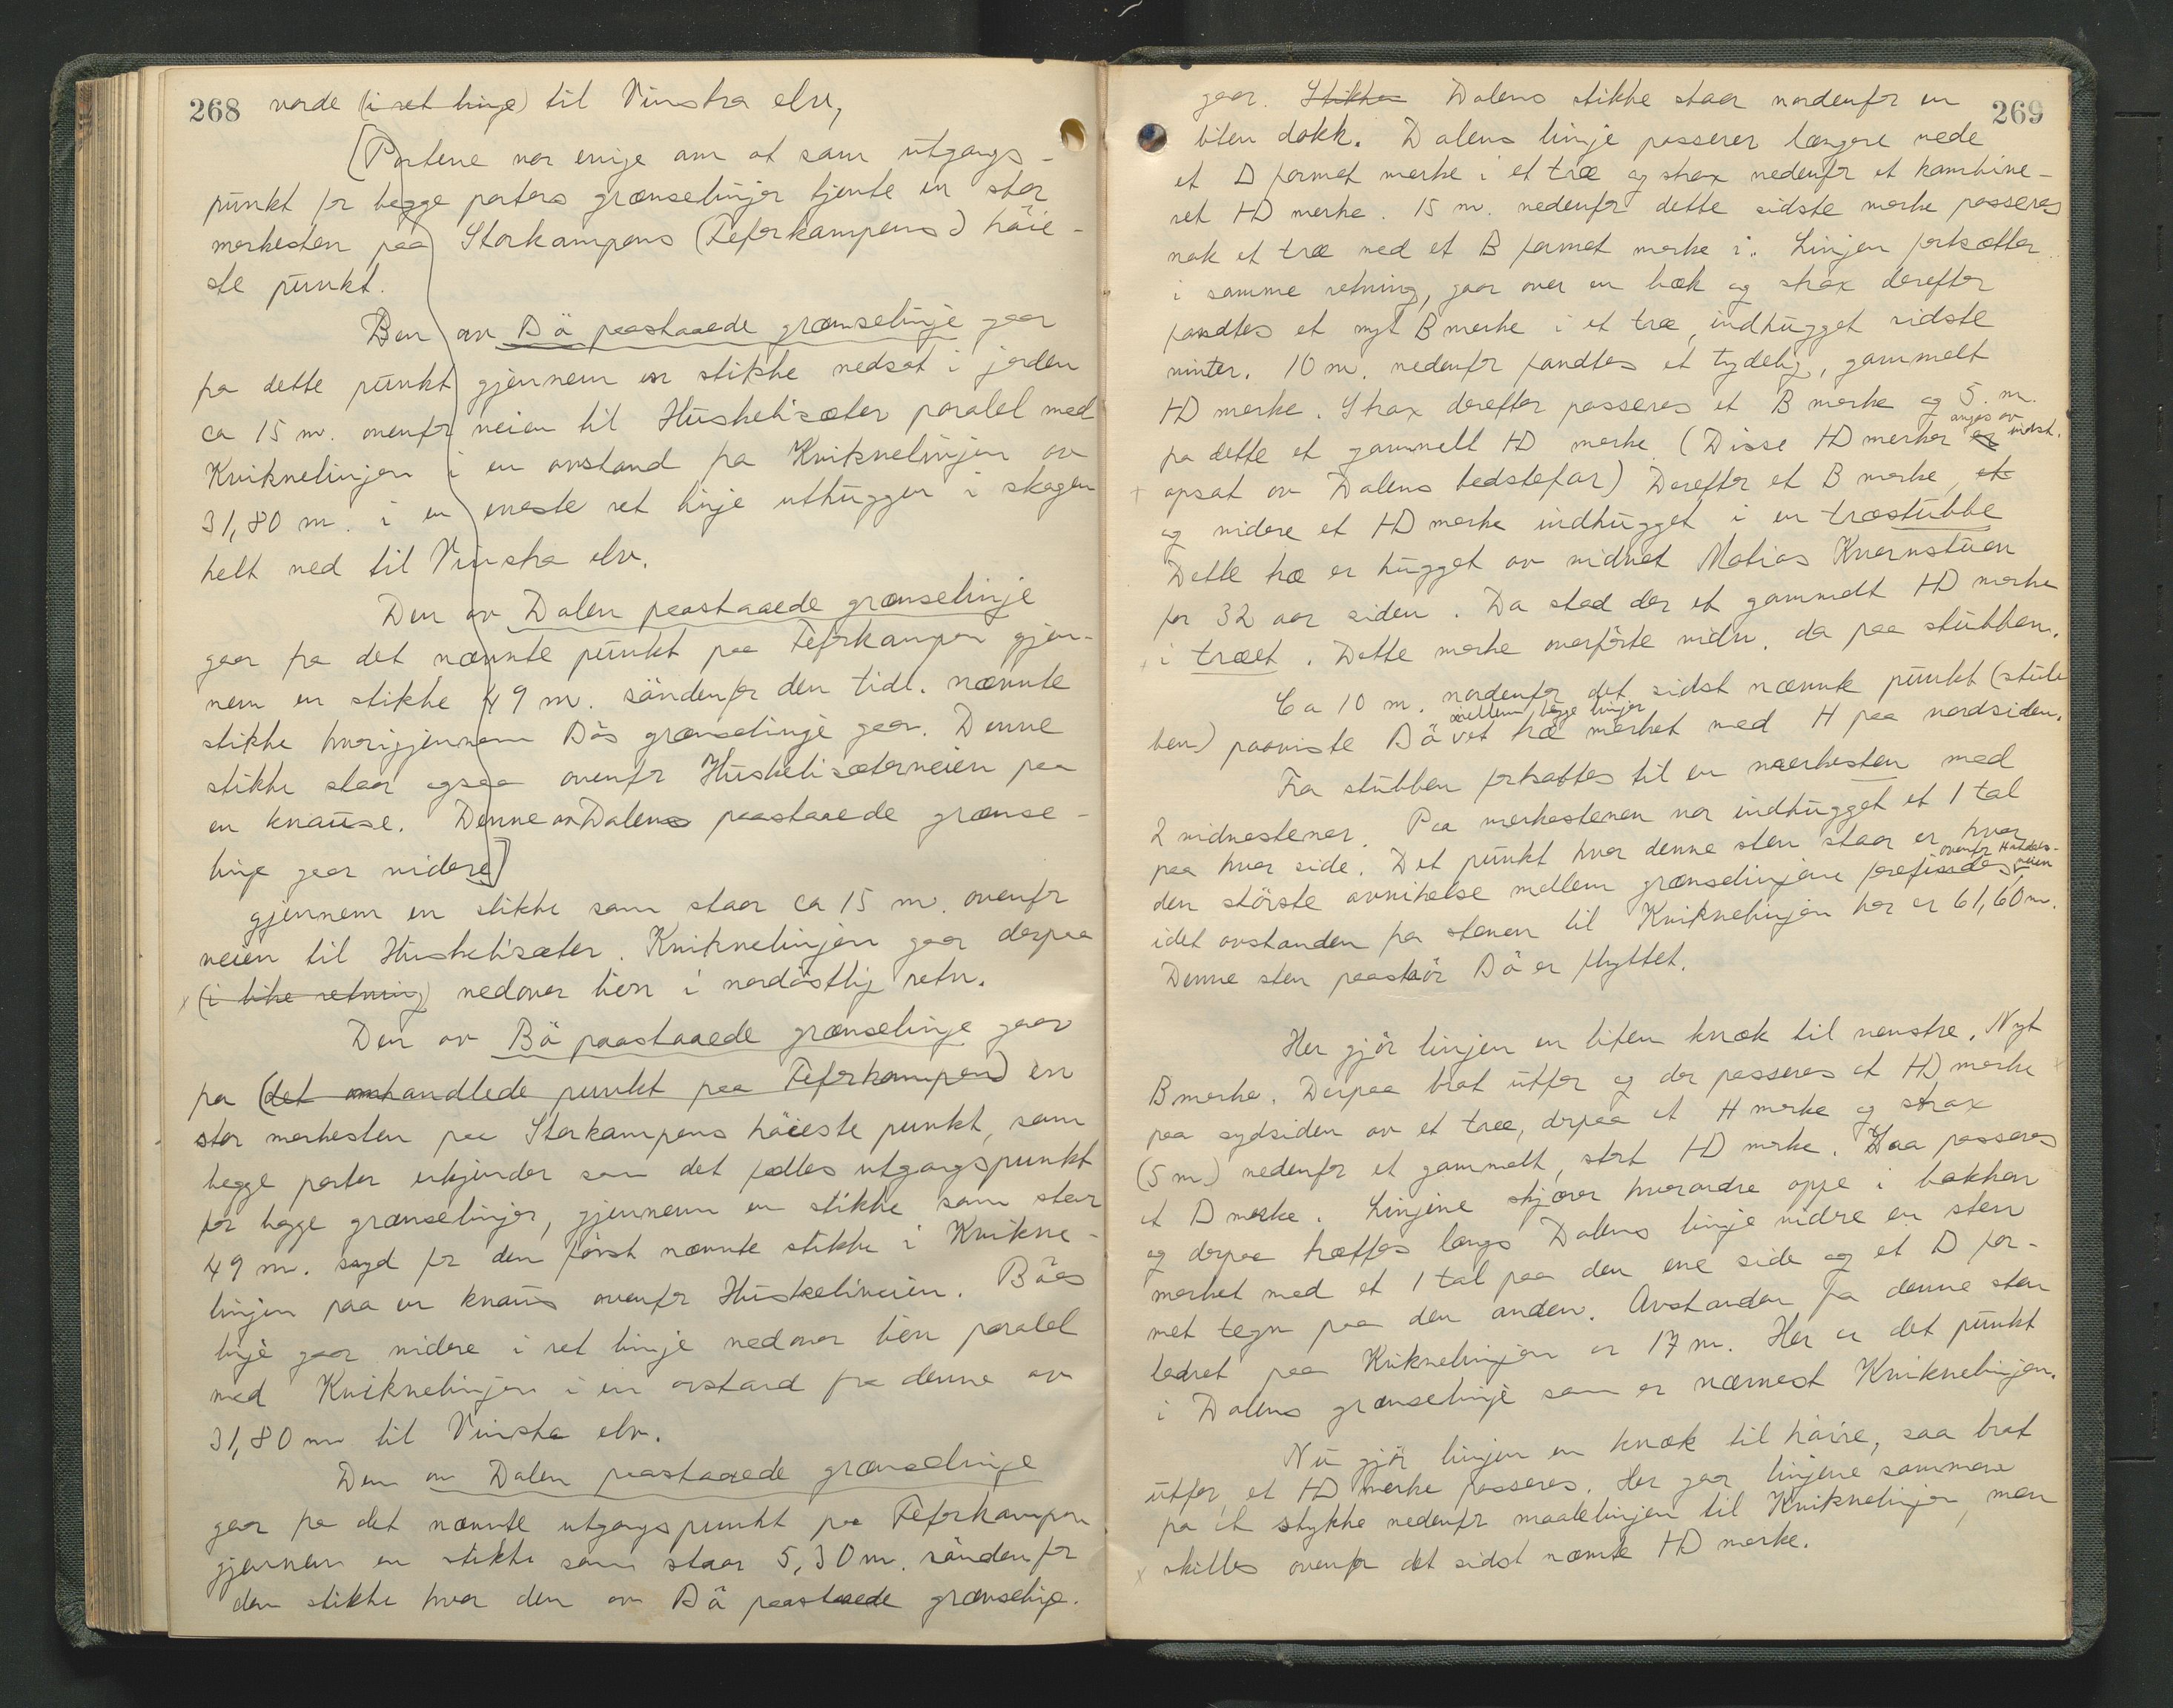 268 varde (i ret linje) til Vinstra elv,
[Partene var enige om at som utgangs-
punkt for begge parters grænselinjer tjente en stor
merkesten paa Storkampens (Feforkampens) höie-
ste punkt.
Den av Bö paastaaede grænselinje gaar
fra dette punkt gjennem en stikke nedsat i jorden
ca 15 m. ovenfr veien til Huskelisæter paralel med
Kviknelinjen i en avstand fra Kviknelinjen av
31,80 m. i en eneste ret linje uthugget i skogen
helt ned til Vinstra elv.
Den av Dalen paastaaede grænselinje
gaar fra det nævnte punkt paa Feforkampen gjen-
nem en stikke 49 m. söndenfor den tidl. nævnte
stikke hvorigjennem Bös grænselinje gaar. Denne
stikke staar ogsaa ovenfr Huskelisæterveien paa
en knause. Denne av Dalens paastaaede grænse-
linje gaar videre]
gjennem en stikke som staar ca 15 m. ovenfr
veien til Huskelisæter. Kviknelinjen gaar derpaa
x (i like retning) nedover lien i nordöstlig retn.
Den av Bö paastaaede grænselinje gaar
fra (det omhandlede punkt paa Feforkampen) en
stor merkesten paa Storkampens höieste punkt, som
begge parter erkjender som det fælles utgangspunkt
for begge grænselinjer, gjennem en stikke som staar
49 m. syd for den först nævnte stikke i Kvikne-
linjen paa en knaus ovenfr Huskeliveien. Böes
linje gaar videre i ret linje nedover lien paralel
med Kviknelinjen i en avstand fra denne av
31,80 m til Vinstra elv.
Den av Dalen paastaaede grænselinje
gaar fra det nævnte utgangspunkt paa Feforkampen
gjennem en stikke som staar 5,30 m. söndenfor
den stikke hvor den av Bö paastaaede grænselinje.
269
gaar. Stikken Dalens stikke staar nordenfr en
liten dokk. Dalens linje passerer længere nede
et D formet merke i et træ og strax nedenfr et kombine-
ret HD merke. 15 m. nedenfor dette sidste merke passeres
nok et træ med et B formet merke i. Linjen fortsætter
i samme retning, gaar over en bæk og strax derefter
fandtes et nyt B merke i et træ, indhugget sidste
vinter. 10 m. nedenfr fandtes et tydelig, gammelt
HD merke. Strax derefter passeres et B merke og 5. m.
fra dette et gammelt HD merke (Disse HD merker er angis av indst.
+ opsat av Dalens bedstefar) Derefter et B merke, et
og videre et HD merke indhugget i en træstubbe
Dette træ er hugget av vidnet Matias Kvernstuen
for 32 aar siden. Da stod der et gammelt HD merke
i træet. Dette merke overförte vidn. da paa stubben.
Ca 10 m. nordenfor det sidst nævnte punkt (stub-
ben) paaviste Bö mellem begge linjer et træ merket med H paa nordsiden.
Fra stubben fortsattes til en merkesten med
2 vidnestener. Paa merkestenen var indhugget et 1 tal
paa hver side. Det punkt hvor denne sten staar er hvor
den störste avvikelse mellem grænselinjene forefindes, ovenfr Huskeli-veien
idet avstanden fra stenen til Kviknelinjen her er 61,60 m.
Denne sten paastaar Bö er flyttet.
Her gjör linjen en liten knæk til venstre. Nyt
B merke. Derpaa brat utfor og der passeres et HD merke
paa sydsiden av et træ, derpaa et H merke og strax
(5 m.) nedenfor et gammelt, stort HD merke. Saa passeres
et D merke. Linjene skjærer hverandre oppe i bakken
og derpaa træffes langs Dalens linje videre en sten
merket med et 1 tal paa den ene side og et D for-
met tegn paa den anden. Avstanden fra denne sten
lodret paa Kviknelinjen er 17 m. Her er det punkt
i Dalens grænselinje som er nærmest Kviknelinjen.
Nu gjör linjen en knæk til höire, saa brat
utfor, et HD merke passeres. Her gaar linjene sammen
fra et stykke nedenfr maalelinjen til Kviknelinjen, men
x skilles ovenfr det sidst nævnte HD merke.